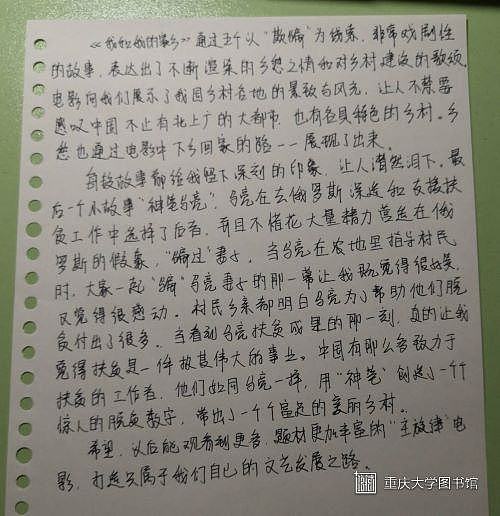 《我和我的家乡》通过五个以“欺骗”为线索,非常戏剧性
的故事,表达出了不断渲染的乡愁之情和对乡村建设的歌颂。
电影向我们展示了我国乡村各地的景致与风光,让人不禁要
感叹中国不止有北上广的大都市,也有各具特色的乡村。乡
愁也通过电影中下乡回家的路一一展现了出来。
每段故事都给我留下深刻的印象,让人潸然泪下。最
后一个小故事“神笔马亮”,马亮在去俄罗斯深造和支援扶
贫工作中选择了后者,并且不惜花大量精力营造在俄
罗斯的假象,“骗过”妻子。当马亮在农地里指导村民
时,大家一起“骗”马亮妻子的那一幕让我既觉得很好笑,
又觉得很感动。村民乡亲都明白马亮为了帮助他们脱
贫付出了很多。当看到马亮扶贫成果的那一刻,真的让我
觉得扶贫是一件极其伟大的事业。中国有那么多致力于
扶贫的工作者,他们如同马亮一样,用“神笔”创造了一个个
惊人的脱贫数字,带出了一个个富足的美丽乡村。
希望,以后能观看到更多,题材更加丰富的“主旋律”电
影,打造只属于我们自己的文艺发展之路。
重庆大学图书馆